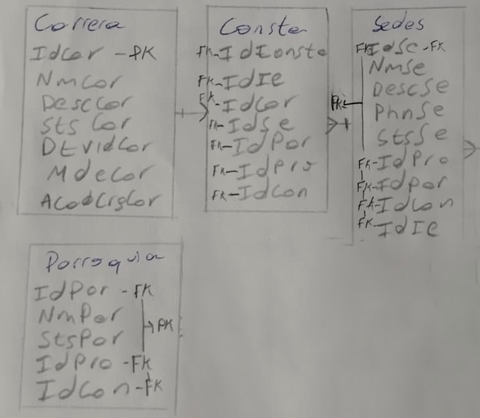 Carrera
IdCar - PK
NmCar
DescCar
Sts Car
DtVidCar
MdeCar
AcodCrsCar
Consta
FK-IdConsta
FK-IdIe
FK-IdCar
FK-IdSe
FK-IdPar
FK-IdPro
FK-IdCan
Sedes
FK IdSe-FK
NmSe
DescSe
PK
PhnSe
StsSe
FK-IdPro
FK-IdPar
FK-IdCan
FK IdIe
Parroquia
IdPar - FK
NmPar
PK
StsPar
IdPro - FK
IdCan - FK